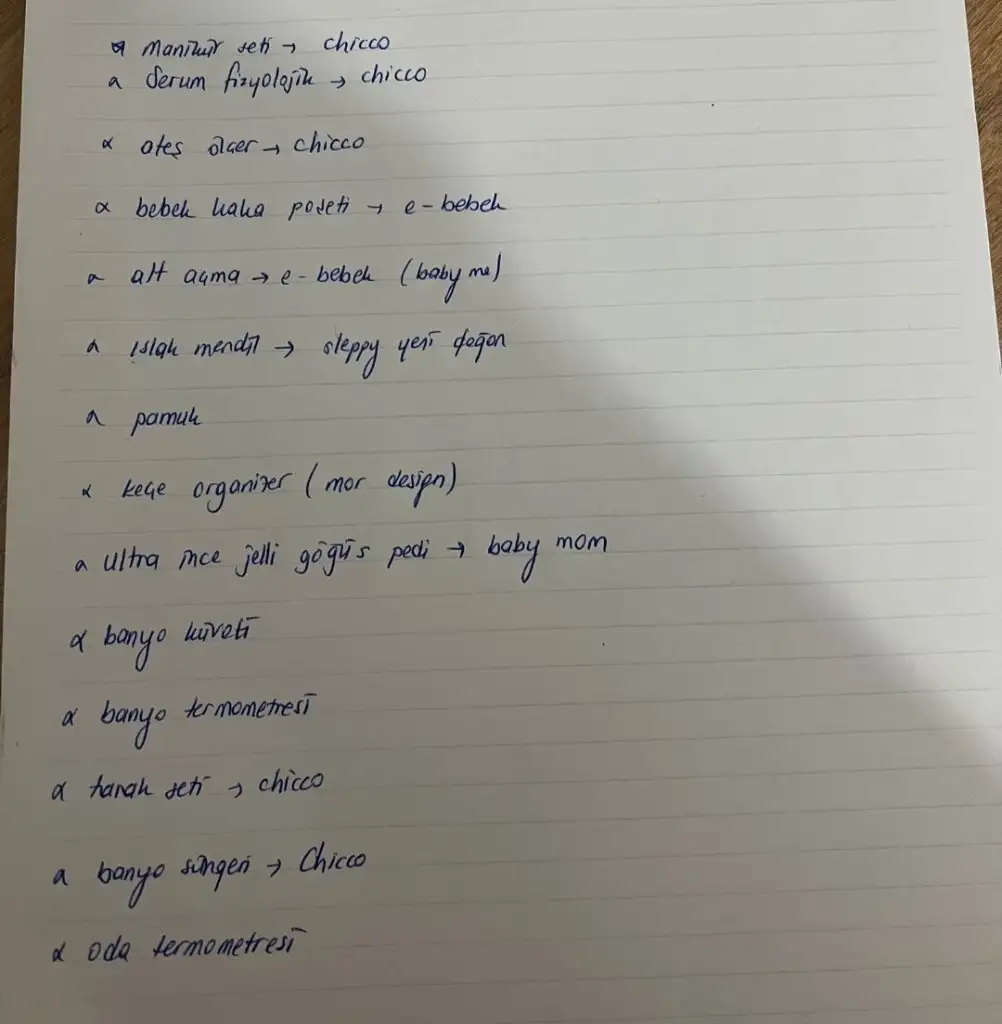 manikür seti → chicco
Serum fizyolojik → chicco
ateş ölçer → chicco
bebek kaka poşeti → e-bebek
alt açma → e-bebek (baby me)
ıslak mendil → sleppy yeni doğan
pamuk
keçe organizer (mor design)
ultra ince jelli göğüs pedi → baby mom
banyo küveti
banyo termometresi
tarak seti → chicco
banyo süngeri → Chicco
oda termometresi